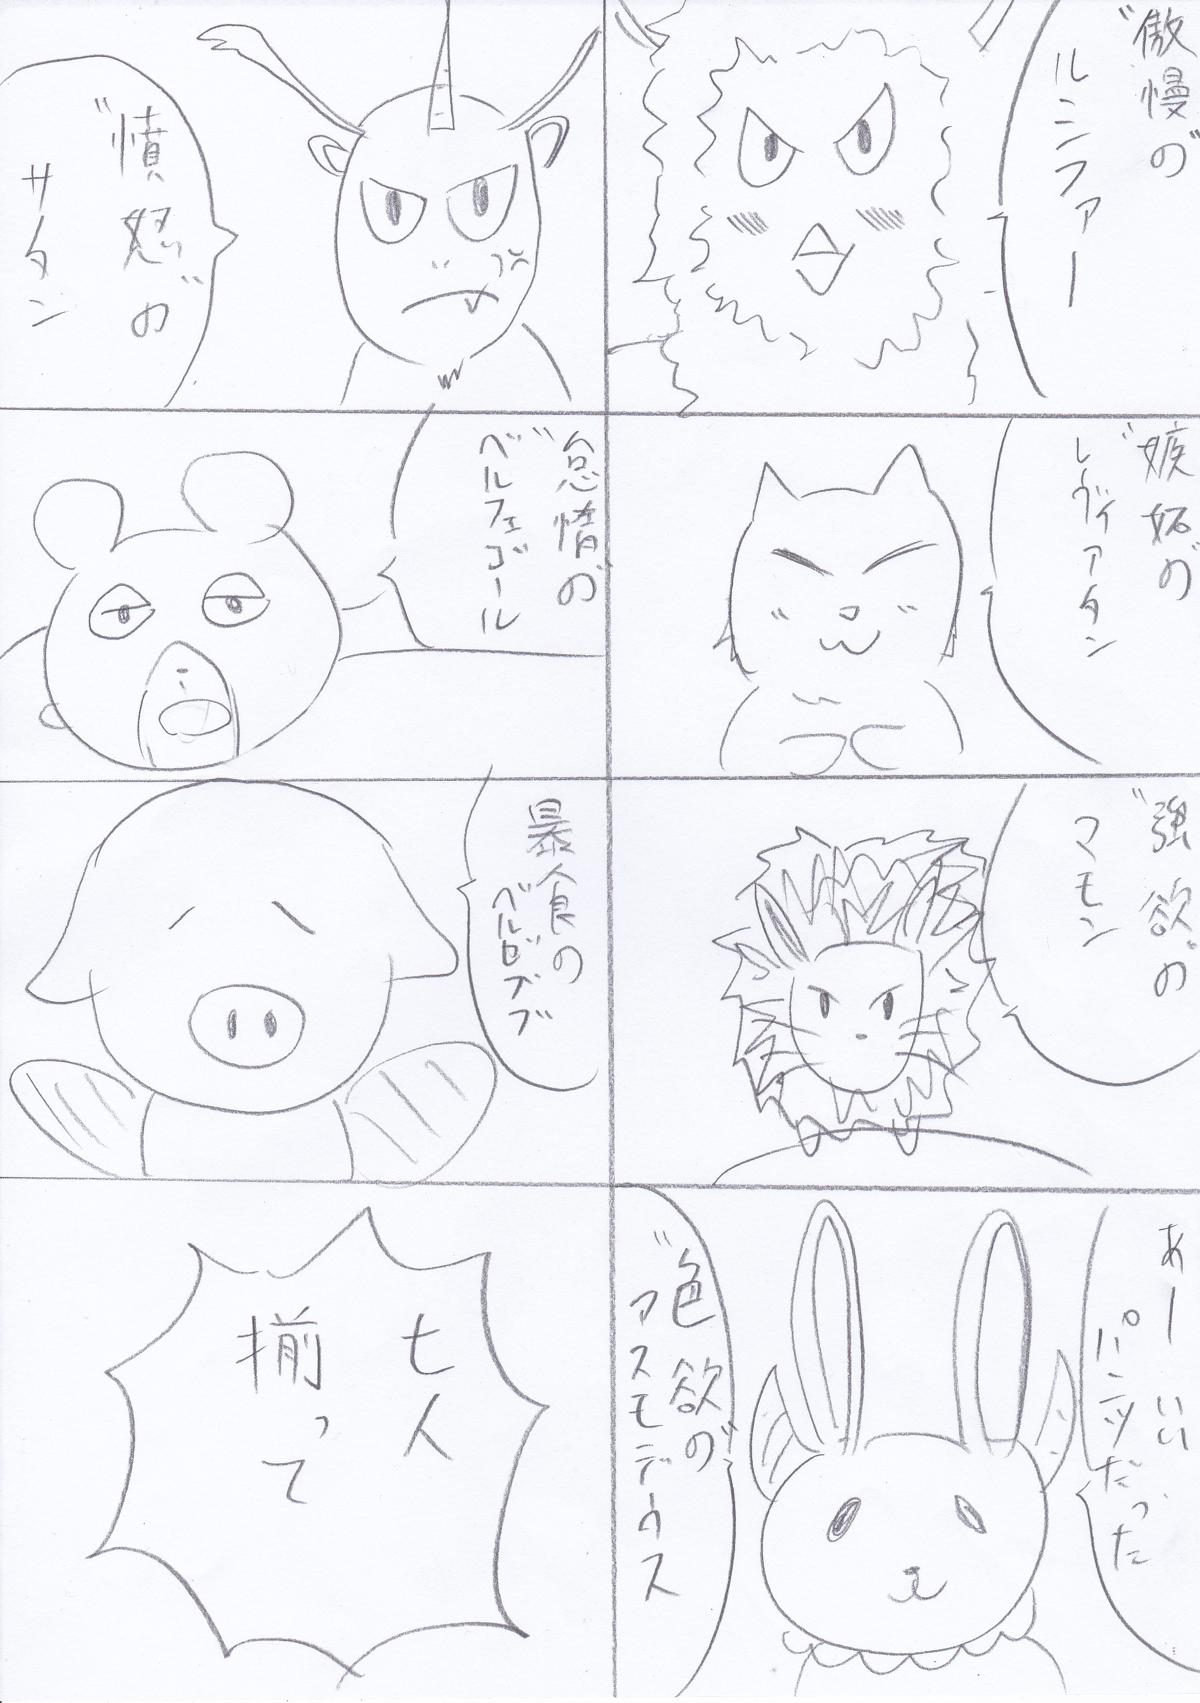 "傲慢"の
ルシファー
"憤怒"の
サタン
"嫉妬"の
レヴィアタン
"怠惰"の
ベルフェゴール
"強欲"の
マモン
暴食の
ベルゼブブ
あーいい
パンツだった
"色欲"の
アスモデウス
七人
揃って